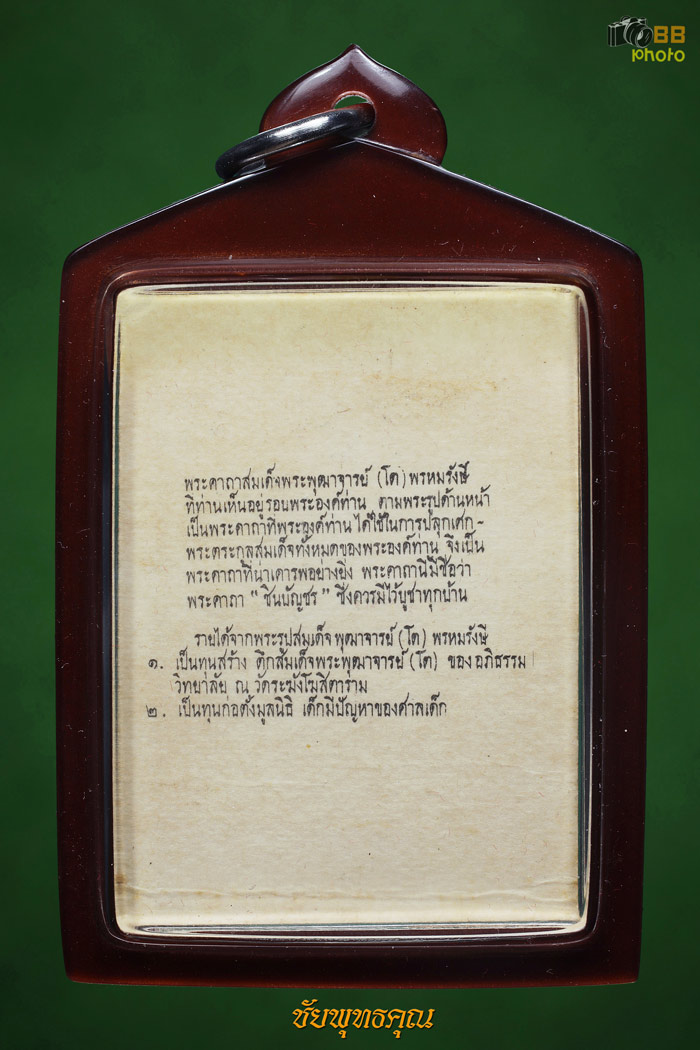 BB
photo
พระคาถาสมเด็จพระพุฒาจารย์ (โต) พรหมรังษี
ที่ท่านเห็นอยู่รอบพระองค์ท่าน ตามพระรูปด้านหน้า
เป็นพระคาถาที่พระองค์ท่านได้ใช้ในการปลุกเศก-
พระตระกูลสมเด็จทั้งหมดของพระองค์ท่าน จึงเป็น
พระคาถาที่น่าเคารพอย่างยิ่ง พระคาถานี้มีชื่อว่า
พระคาถา " ชินบัญชร " ซึ่งควรมีไว้บูชาทุกบ้าน
รายได้จากพระรูปสมเด็จพุฒาจารย์ (โต) พรหมรังษี
๑. เป็นทุนสร้าง ตึกสมเด็จพระพุฒาจารย์ (โต) ของอภิธรรม
วิทยาลัย ณ วัดระฆังโฆสิตาราม
๒. เป็นทุนก่อตั้งมูลนิธิ เด็กมีปัญหาของศาลเด็ก
ชัยพุทธคุณ